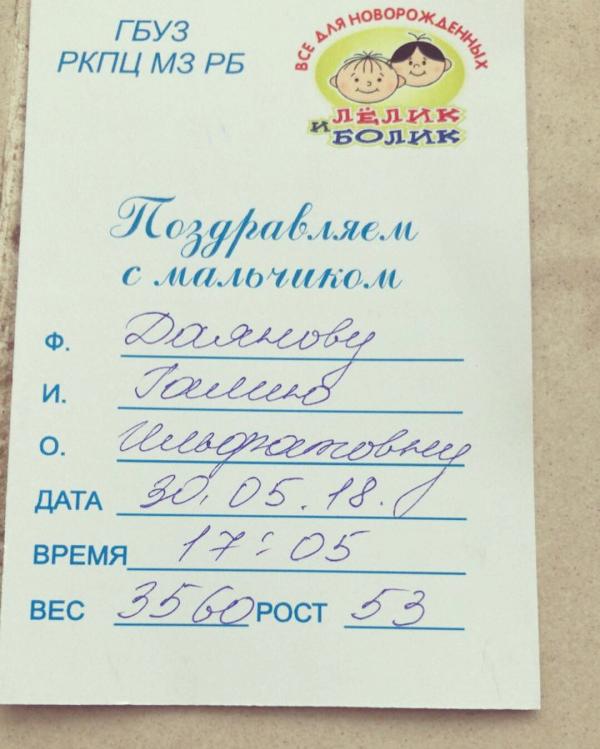 ГБУЗ
РКПЦ МЗ РБ
ВСЕ ДЛЯ НОВОРОЖДЕННЫХ
ЛЁЛИК
И БОЛИК
Поздравляем
с мальчиком
Ф. Даянову
И.
О. Ильфатовну
ДАТА 30.05.18.
ВРЕМЯ 17:05
ВЕС 3560 РОСТ 53